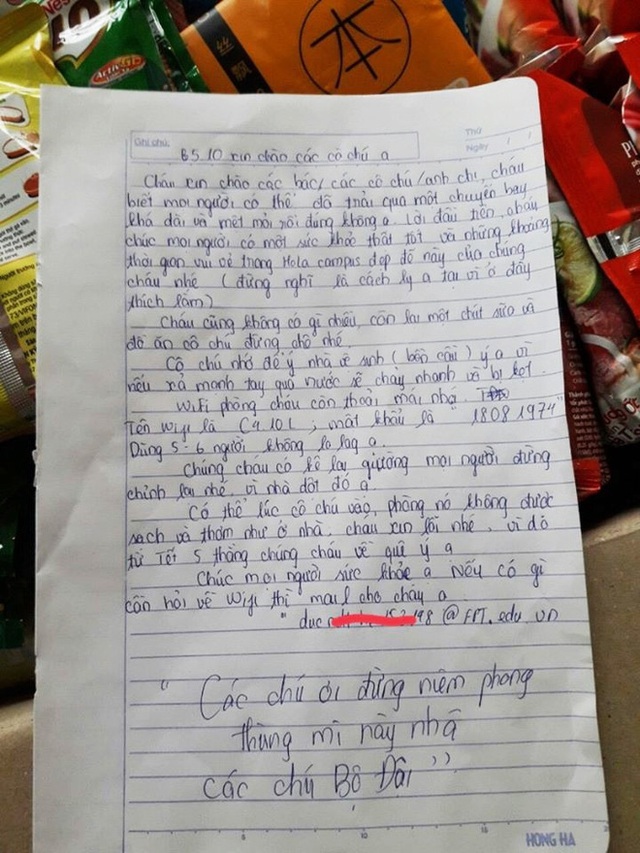 本
丝飘
Activ
Ghi chú:
Thứ
Ngày / /
B5.10 xin chào các cô chú ạ
Cháu xin chào các bác/ các cô chú/anh chị, cháu
biết mọi người có thể đã trải qua một chuyến bay
khá dài và mệt mỏi rồi đúng không ạ. Lời đầu tiên, cháu
chúc mọi người có một sức khỏe thật tốt và những khoảng
thời gian vui vẻ trong Hola campus đẹp đẽ này của chúng
cháu nhé (đừng nghĩ là cách ly ạ tại vì ở đây
thích lắm)
Cháu cũng không có gì nhiều, còn lại một chút sữa và
đồ ăn cô chú đừng chê nhé.
Cô chú nhớ để ý nhà vệ sinh (bồn cầu) ý ạ vì
nếu xả mạnh tay quá nước sẽ chảy nhanh và bị kẹt.
WiFi phòng cháu còn thoải mái nhá.
Tên Wifi là C410L, mật khẩu là "18081974"
Dùng 5-6 người không lo lag ạ.
Chúng cháu có kê lại giường mọi người đừng
chỉnh lại nhé, vì nhà dột đó ạ.
Có thể lúc cô chú vào, phòng nó không được
sạch và thơm như ở nhà, cháu xin lỗi nhé. vì đã
từ Tết 5 tháng chúng cháu về quê ý ạ
Chúc mọi người sức khỏe ạ Nếu có gì
cần hỏi về Wifi thì mail cho cháu ạ.
@FPT.edu.vn
"Các chú ơi đừng niêm phong
thùng mì này nhá
các chú Bộ Đội"
5 10 15
HONG HA